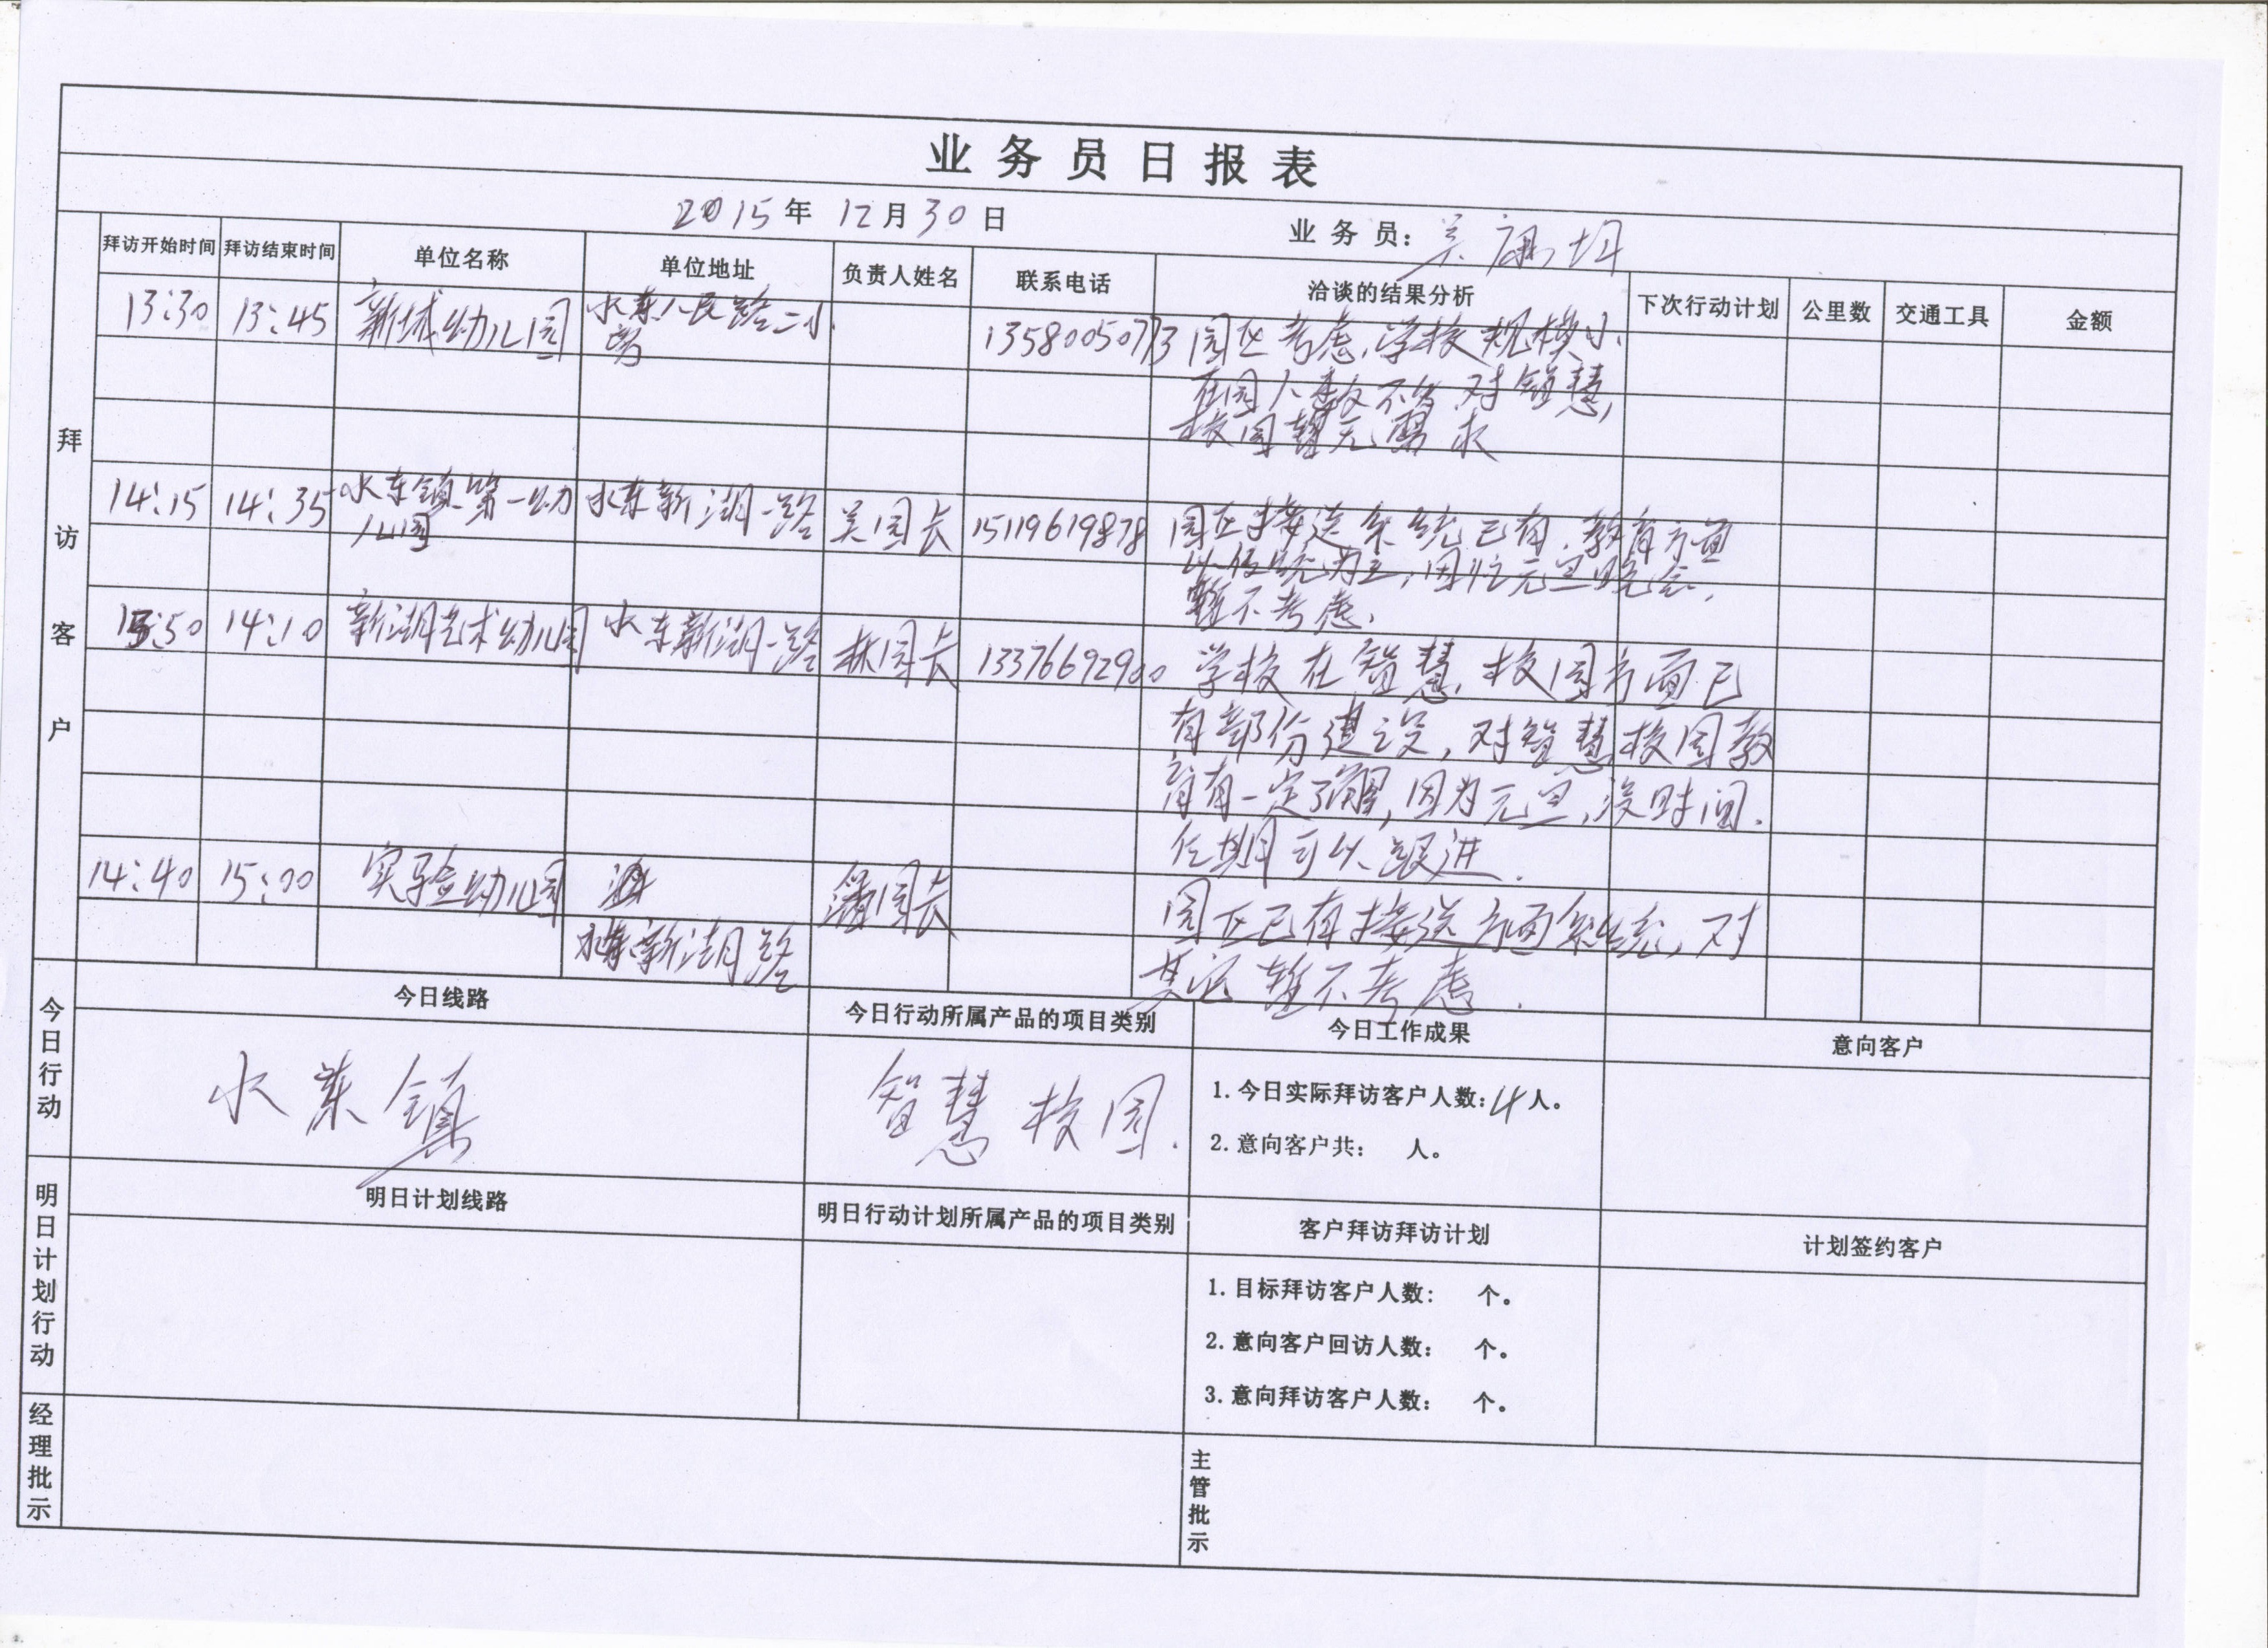 业务员日报表
2015年 12月30日 业务员：吴
拜访客户
拜访开始时间 拜访结束时间 单位名称 单位地址 负责人姓名 联系电话 洽谈的结果分析 下次行动计划 公里数 交通工具 金额
13:30 13:45 新城幼儿园 水东人民路二小 13580050773 园区考虑,学校规模小.
旁
在园人数不多,对智慧,
校园暂无需求
14:15 14:35 水东镇第一幼 水东新湖一路 吴园长 15119619878 园区接送系统已有.教育方面
儿园
以传统为主,因忙元旦晚会,
暂不考虑.
13:50 14:10 新湖艺术幼儿园 水东新湖一路 林园长 13376692900 学校在智慧,校园方面已
有部份建设,对智慧校园教
育有一定了解,因为元旦,没时间.
后期可以跟进.
14:40 15:00 实验幼儿园 潘园长 园区已有接送方面系统,对
水东新湖路
其它暂不考虑.
今日行动
今日线路 今日行动所属产品的项目类别 今日工作成果 意向客户
水东镇 智慧校园.
1.今日实际拜访客户人数：4人。
2.意向客户共： 人。
明日计划行动
明日计划线路 明日行动计划所属产品的项目类别 客户拜访拜访计划 计划签约客户
1.目标拜访客户人数： 个。
2.意向客户回访人数： 个。
3.意向拜访客户人数： 个。
经理批示
主管批示